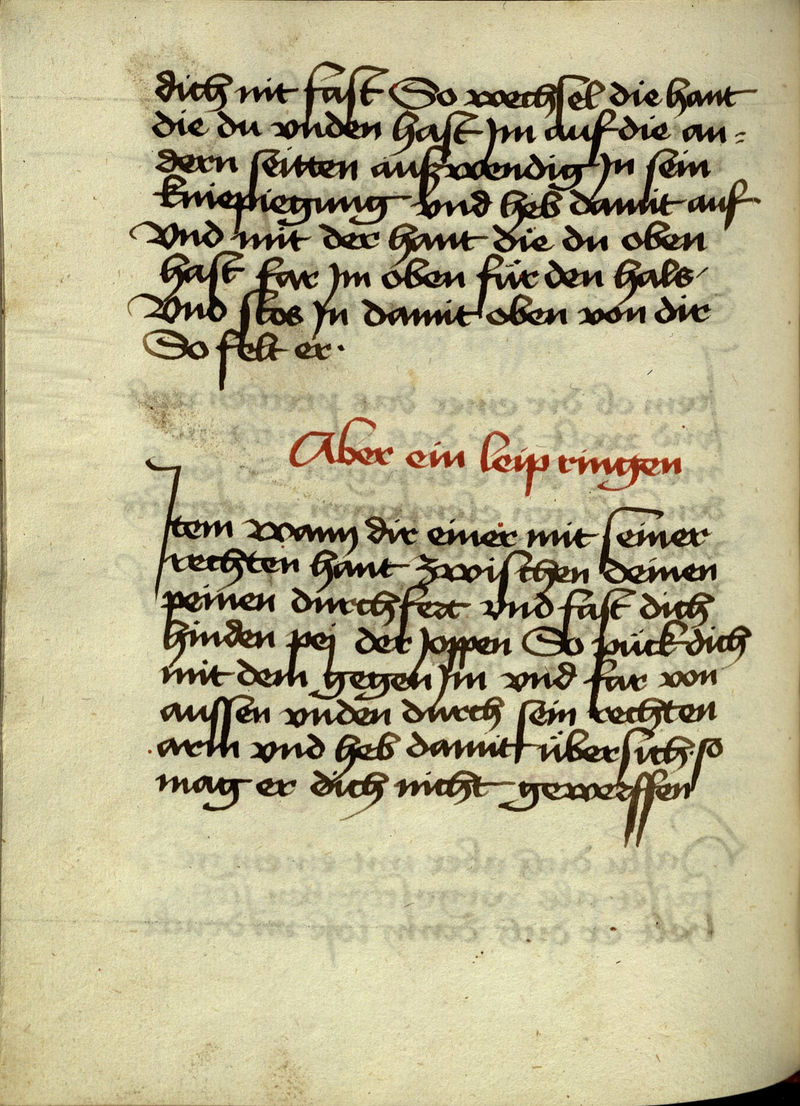 dich nit fast So wechsel die hant
die du vnden hast Jm auf die an=
dern seitten außwendig Jn sein
kniepiegung vnd heb damit auf
Vnd mit der hant die du oben
hast far Jm oben für den hals
Vnd stos Jn damit oben von dir
So felt er.
Aber ein leip ringen
Jtem wann dir einer mit seiner
rechten hant zwischen deinen
peinen durchfert vnd fast dich
hinden pej der Joppen So puck dich
mit dem gegen Jm vnd far von
aussen vnden durch sein rechten
arm vnd heb damit übersich so
mag er dich nicht gewerffen